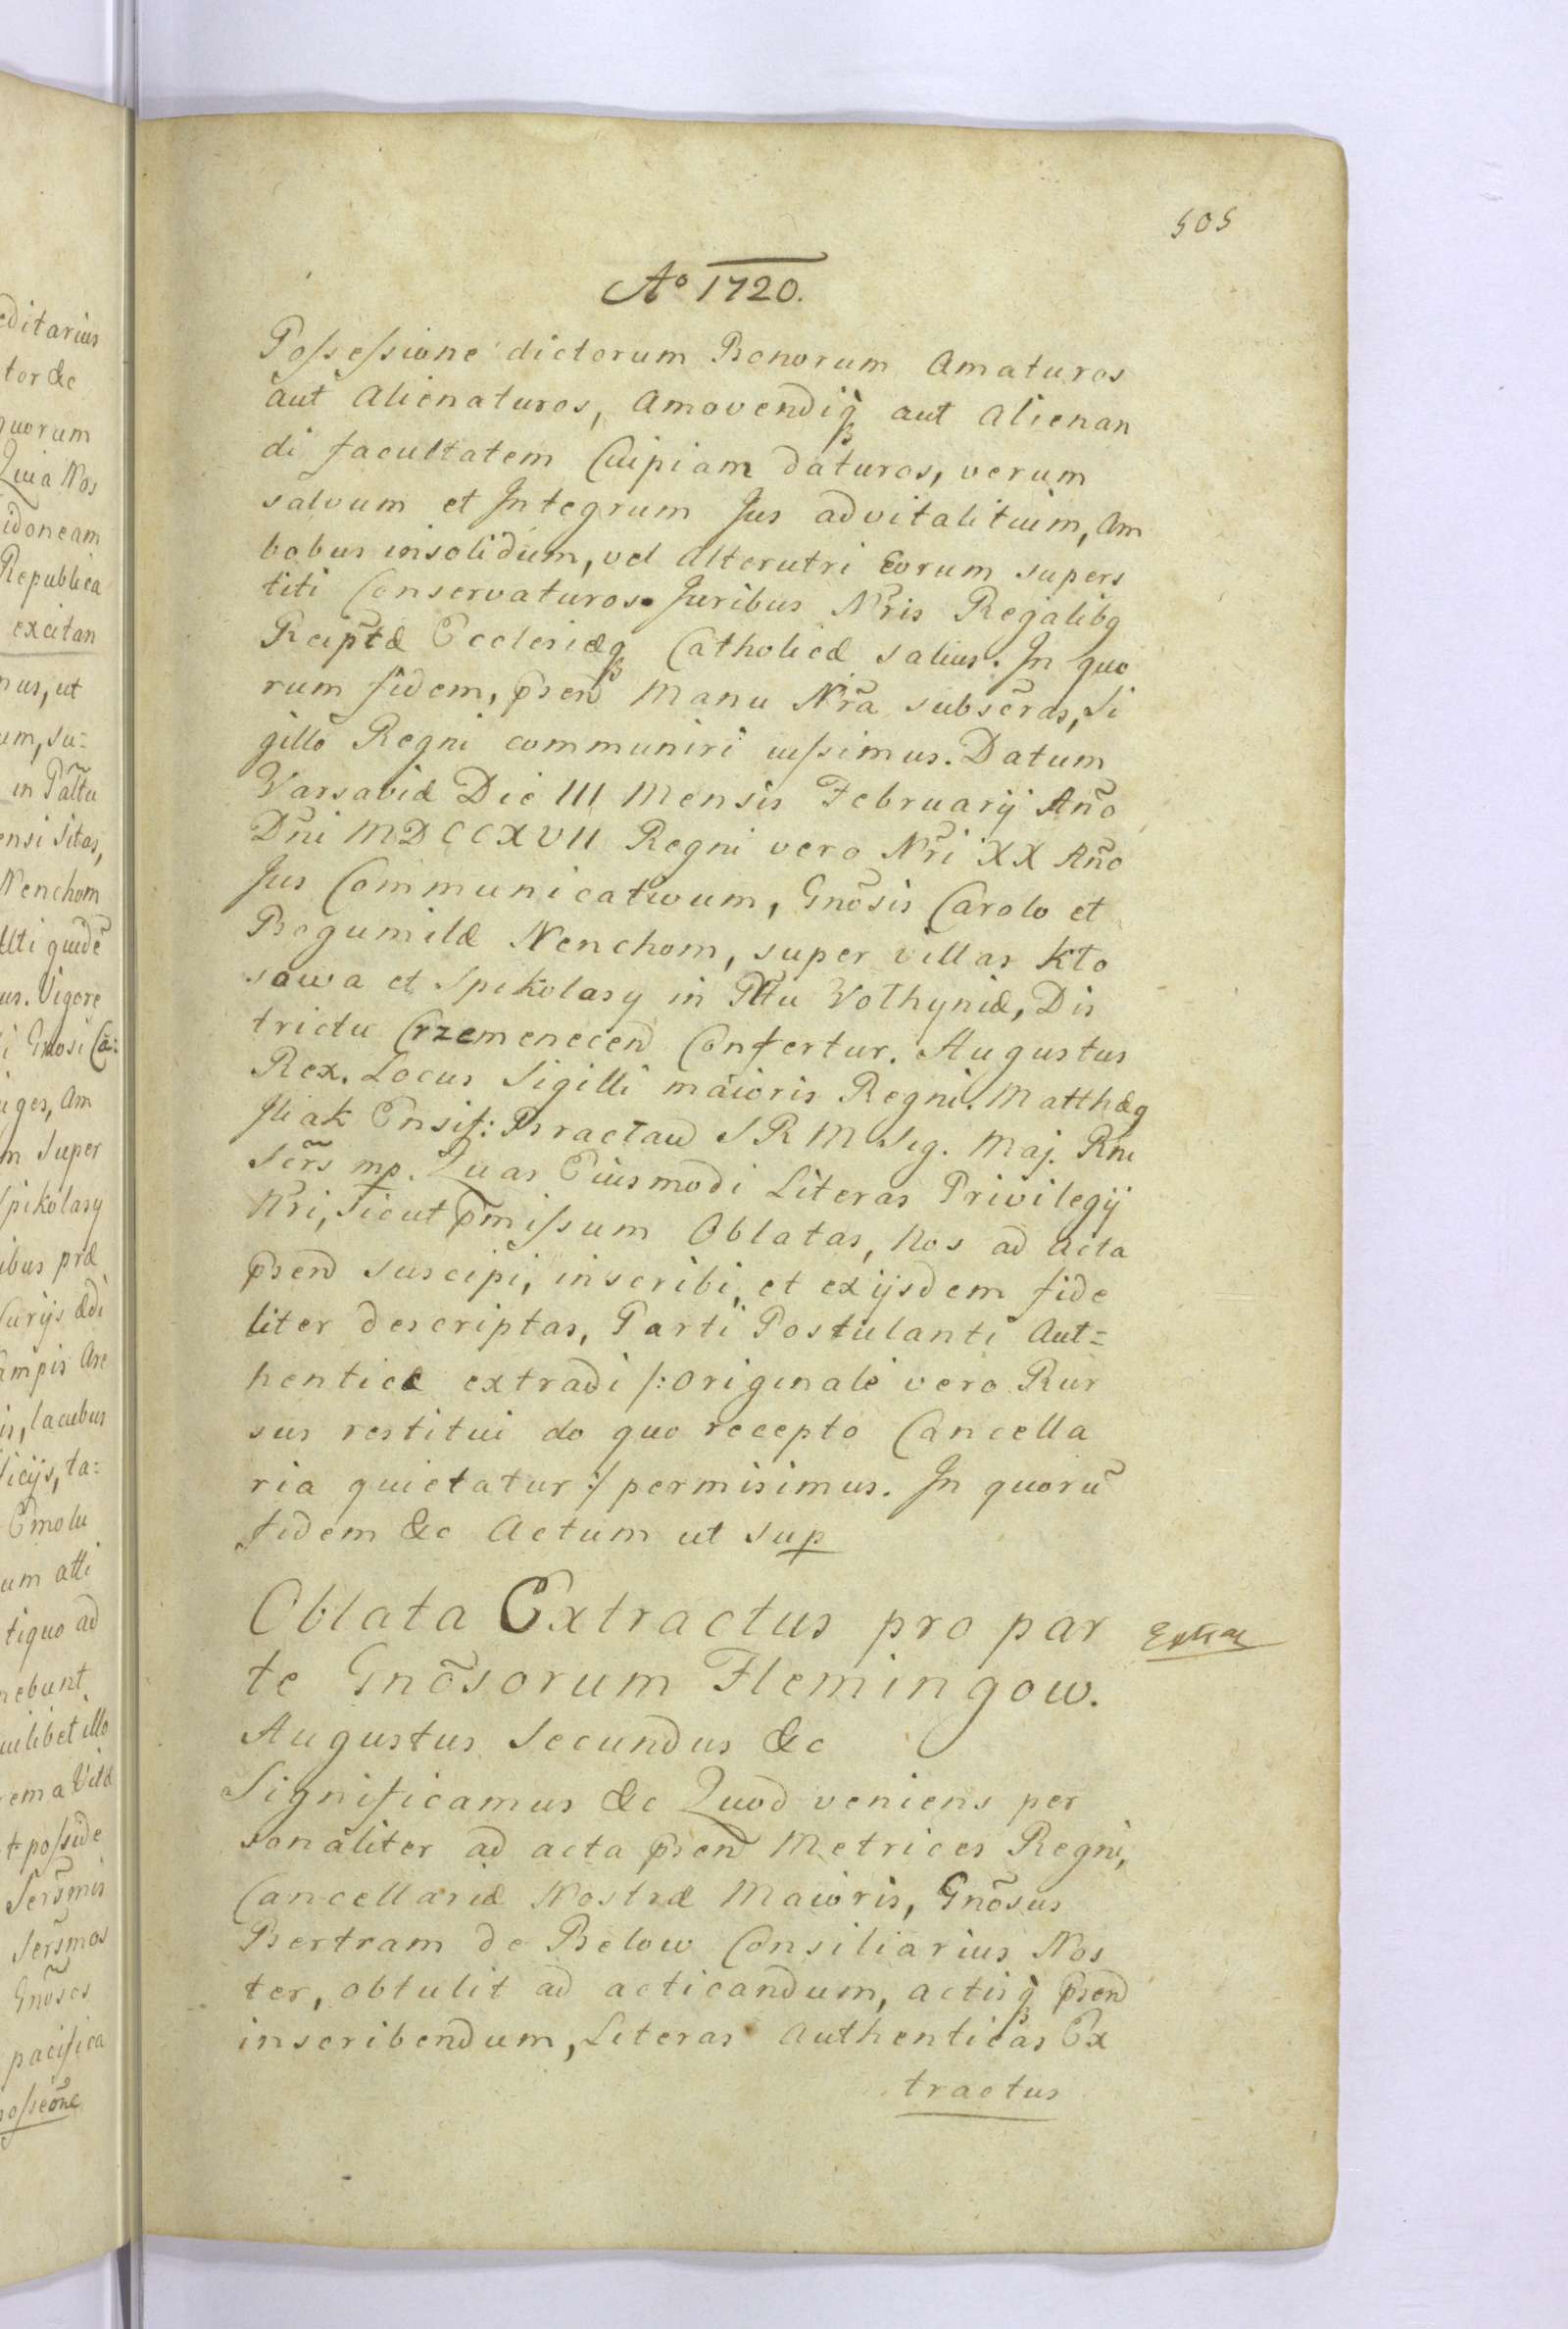 505
Aº 1720.
Possessione dictorum Bonorum Amaturos
aut Alienaturos, Amovendiq̃ aut alienan
di facultatem Cuipiam daturos, verum
salvum et Integrum Jus advitalitium, Am
bobus insolidum, vel alterutri Eorum supers
titi Conservaturos. Juribus Nr̃is Regalibg
Reiptæ Ecclesiæq̃ Catholicæ salius. In quo
rum fidem, p̃sen̄ Manu Nr̃a subscr̃as, Si
gillo Regni communiri iussimus. Datum
Varsaviæ Die III Mensis February Año
Dñi MDCCXVII Regni vero Nr̃i XX Año
Jus Communicativum, Gnõsis Carolo et
Bogumilæ Nenchom, super villas Kto
sowa et Spikolasy in Pttu Volhyniæ, Dis
trictu Crzemenecen̄ Confertur. Augustus
Rex. Locus Sigilli maioris Regni. Matthæg
Iliak Ensif: Bractaw S R M Sig. Maj. Rni
Scr̃s mp. Quas Eiusmodi Literas Privilegij
Nri, sicut p̃missum Oblatas, Nos ad Acta
p̃sen̄ suscipi, inscribi, et exijsdem fide
liter descriptas, Parti Postulanti Aut=
henticæ extradi /: originale vero Rur
sus restitui do quo recepto Cancella
ria quietatur :/ permisimus. In quorũ
fidem &c Actum ut sup
Oblata Extractus pro par
te Gnõsorum Flemingow.
Augustus Secundus &c
Significamus &c Quod veniens per
sonaliter ad acta p̃sen̄ Metrices Regni,
Cancellariæ Nostræ Maioris, Gnõsus
Bertram de Below Consiliarius Nos
ter, obtulit ad acticandum, actisq̃ p̃sen̄
inscribendum, Literas Authenticas Ex
tractus
editarius
tor &c
quorum
Quia Nos
idoneam
Republica
excitan
nus, ut
um, su=
in Palt̃u
ensi Sitas,
Nenchom
Uti quidẽ
us. Vigore
i Gnosi Ca=
iges, Am
m super
Spikolasy
ibus præ
Curijs ædi
ampis Are
is, lacubus
ficijs, ta=
Emolu
um atti
tiquo ad
nebunt
uilibet illo
rem a Vitæ
t posside
Ser̃smis
Ser̃smos
Gnõsos
pacifica
possẽone